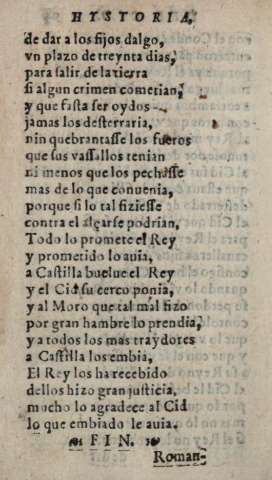 HYSTORIA,
de dar a los fijos dalgo,
vn plazo de treynta dias,
para salir de la tierra
si algun crimen cometian,
y que fasta ser oydos
jamas los desterraria,
nin quebrantasse los fueros
que sus vassallos tenian
ni menos que los pechasse
mas de lo que conuenia,
porque si lo tal fiziesse
contra el algarse podrian,
Todo lo promete el Rey
y prometido lo auia,
a Castilla buelue el Rey
y el Cid su cerco ponia,
y al Moro que tal mal fizo
por gran hambre lo prendia,
y a todos los mas traydores
a Castilla los embia,
El Rey los ha recebido
dellos hizo gran justicia,
mucho lo agradece al Cid
lo que embiado le auia.
FIN.
Roman-